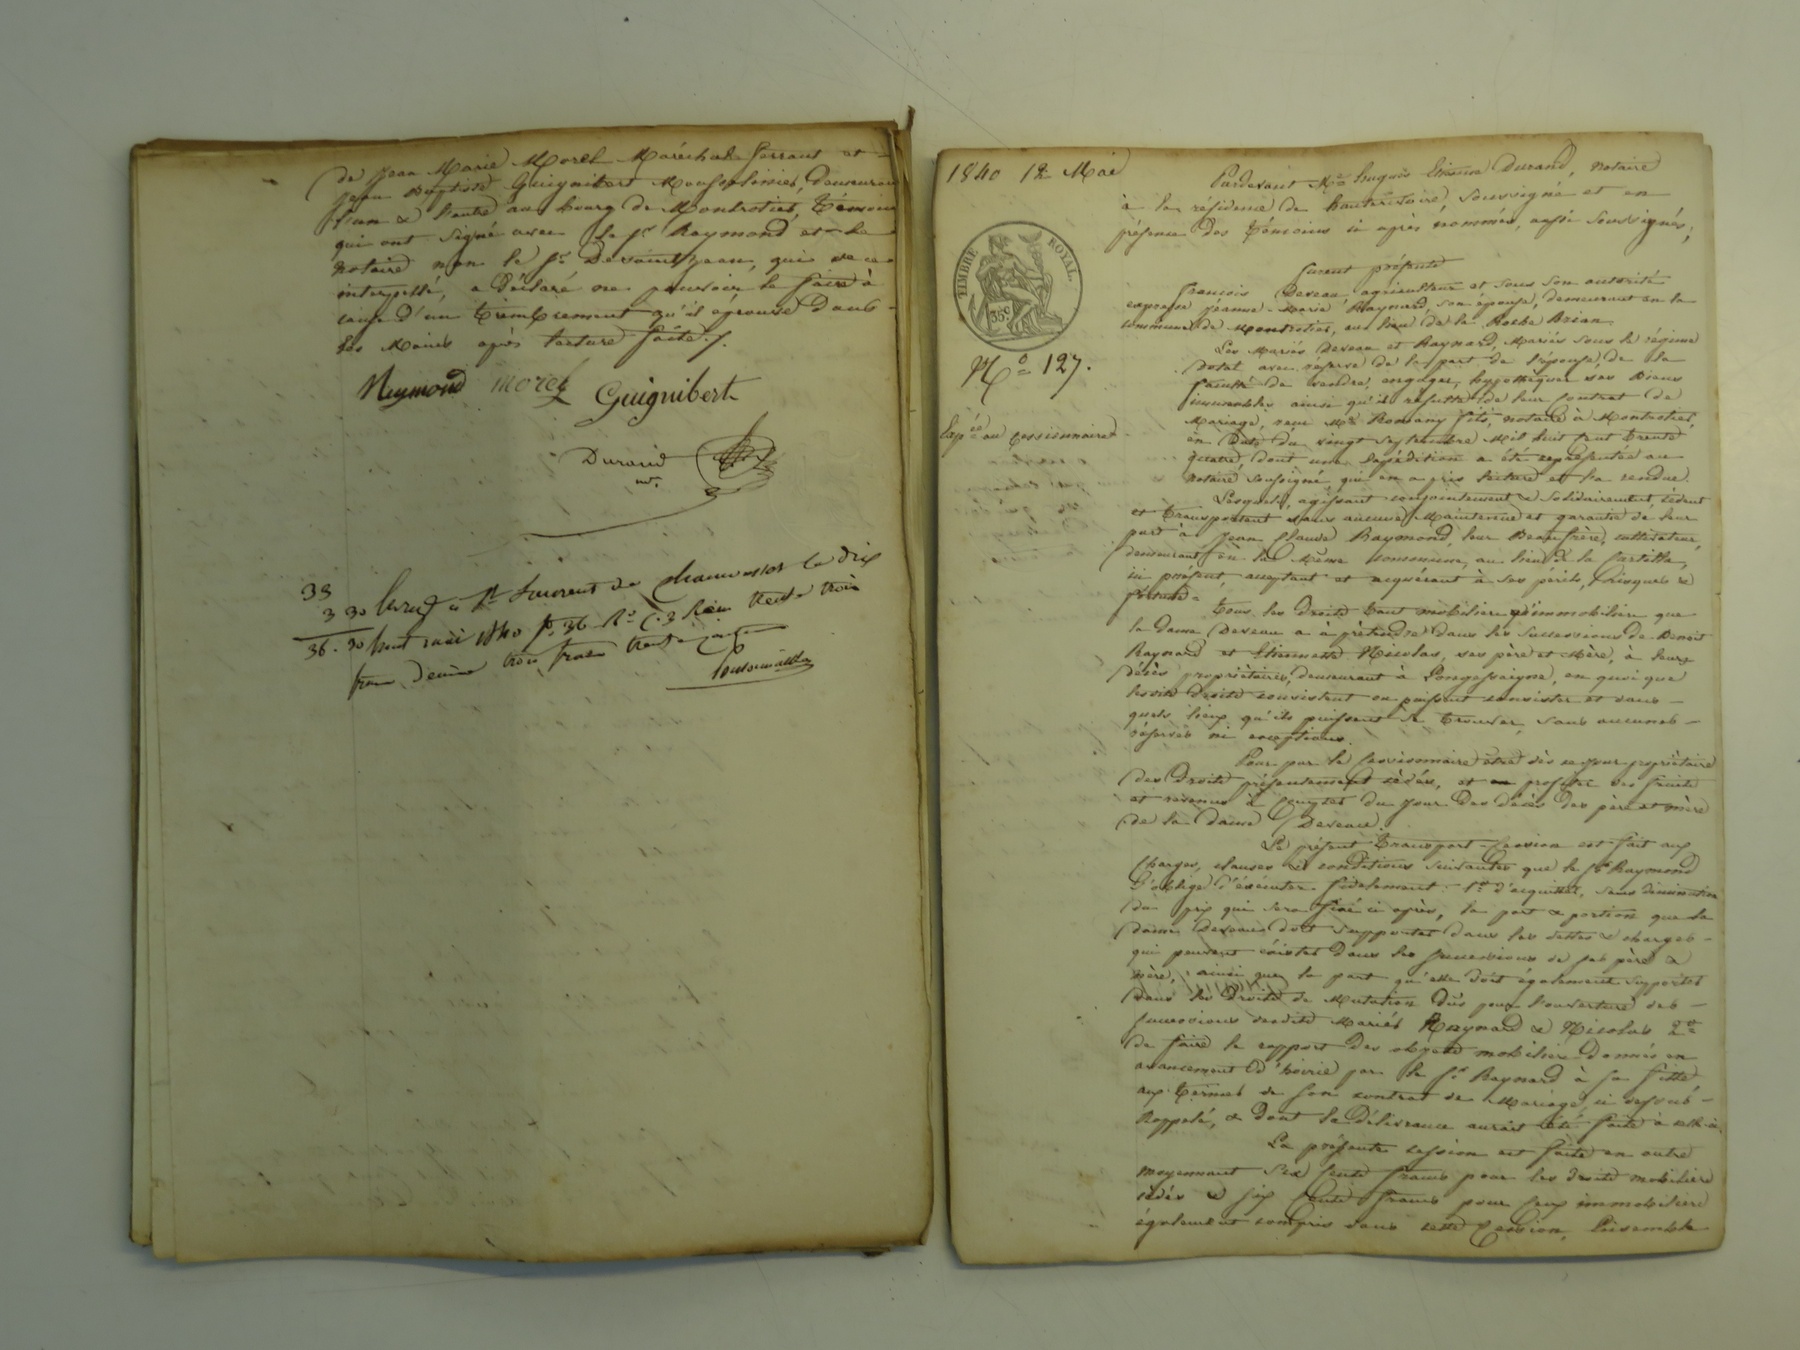 de Jean Marie Morel Maréchal ferrant et
Jean Baptiste Guignibert Mousselinier, demeurant
l'un & l'autre au bourg de Montrotier, témoins
qui ont signé avec le Sr. Raymond et le
notaire non le Sr. qui de ce
interpellé, a déclaré ne pouvoir le faire à
cause d'un tremblement qu'il éprouve dans
les Mains après lecture faite./.
Reymond morel Guignibert
Durand
nre.
33
3 30 Enreg. à St Laurent de Chamousset le dix
36.30 huit mai 1840 fo. 36 Ro. C. 3 Reçu trente trois
francs décime trois francs trente centimes
1840 18 Mai
TIMBRE ROYAL
35c
No. 127.
Expée. au Cessionnaire
Pardevant Me. hugues Etienne Durand, notaire
à la résidence de hauterivoire, soussigné et en
présence des témoins ci après nommés, aussi soussignés,
furent présents
francois Deveau agriculteur et sous son autorité
expresse jeanne-Marie Raynard, son épouse, demeurant en la
commune de Montrotier, au lieu de la Roche Brian
Les Mariés Deveau et Raynard, Mariés sous le régime
Dotal avec réserve de la part de l'épouse de la
faculté de vendre, engager, hypothéquer ses Biens
immeubles ainsi qu'il résulte de leur Contrat de
Mariage, reçu Me. Romany fils, notaire à Montrotier,
en Date du vingt septembre Mil huit Cent trente
quatre, dont une Expédition a été représentée au
notaire soussigné, qui en a pris lecture et l'a rendue.
Lesquels, agissant conjointement & solidairement, cèdent
et transportent sans aucune Maintenue et garantie de leur
part à Jean Claude Raymond, leur Beau-frère, cultivateur,
demeurant en la Même commune, au lieu de la
ici présent, acceptant et acquérant à ses périls, risques &
fortune=
Tous les droits tant mobiliers qu'immobiliers que
la dame Deveau a à prétendre dans les successions de Benoit
Raynard et Etiennette Nicolas, ses père et Mère, à leurs
Décès propriétaires, demeurant à Longessaigne, en quoi que
lesdits droits consistent ou puissent consister et dans
quels lieux qu'ils puissent se trouver, sans aucunes
réserves ni exceptions.
Pour par le Cessionnaire être dès ce jour propriétaire
des Droits présentement cédés, et en profiter des fruits
et revenus à Compter du jour des décès des père et mère
de la dame Deveau.
Le présent transport-Cession est fait aux
Charges, clauses & conditions suivantes que le Sr. Raymond
s'oblige d'exécuter fidèlement: 1o. d'acquitter, sans diminution
du prix qui sera fixé ci après, la part & portion que la
dame Deveau doit supporter dans les dettes & charges
qui peuvent exister dans les successions de ses père &
mère, ainsi que la part qu'elle doit également supporter
dans les Droits de Mutation dûs pour l'ouverture des
successions desdits Mariés Raynard & Nicolas 2o.
de faire le rapport des objets mobiliers donnés en
avancement d'hoirie par le Sr. Raynard à sa fille
aux termes de son contrat de Mariage ci dessus
Rappelé, & dont la Délivrance aurait été faite à celle-ci.
La présente cession est faite en outre
moyennant Six Cents francs pour les droits mobiliers
cédés & six Cents francs pour Ceux immobiliers
également compris dans cette Cession, Ensemble